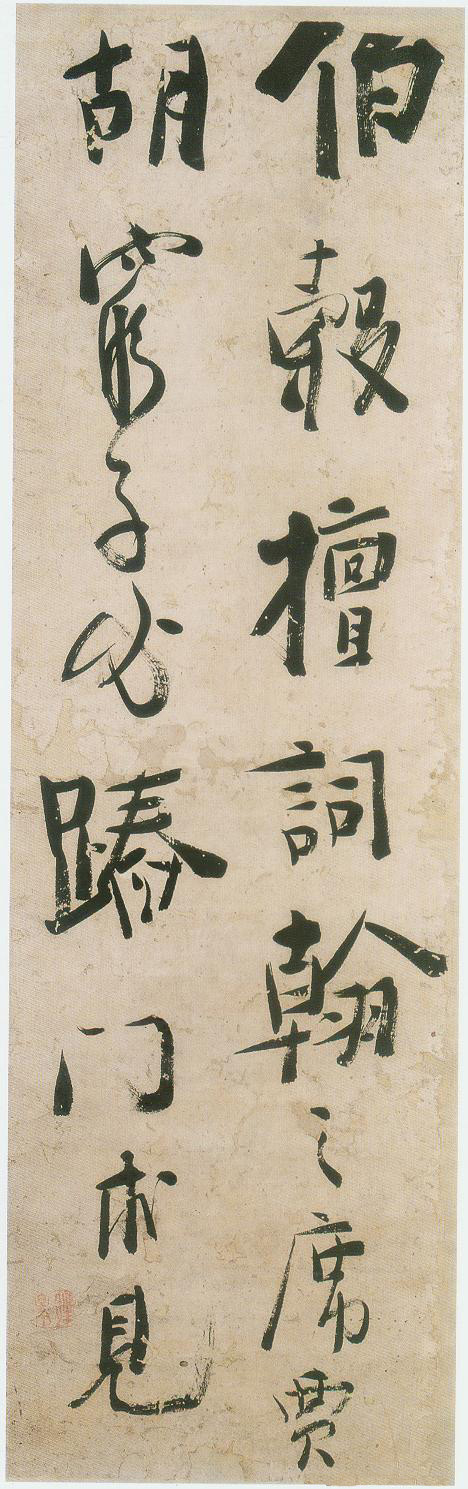 伯穀擅詞翰之席賈
胡窮子必門求見